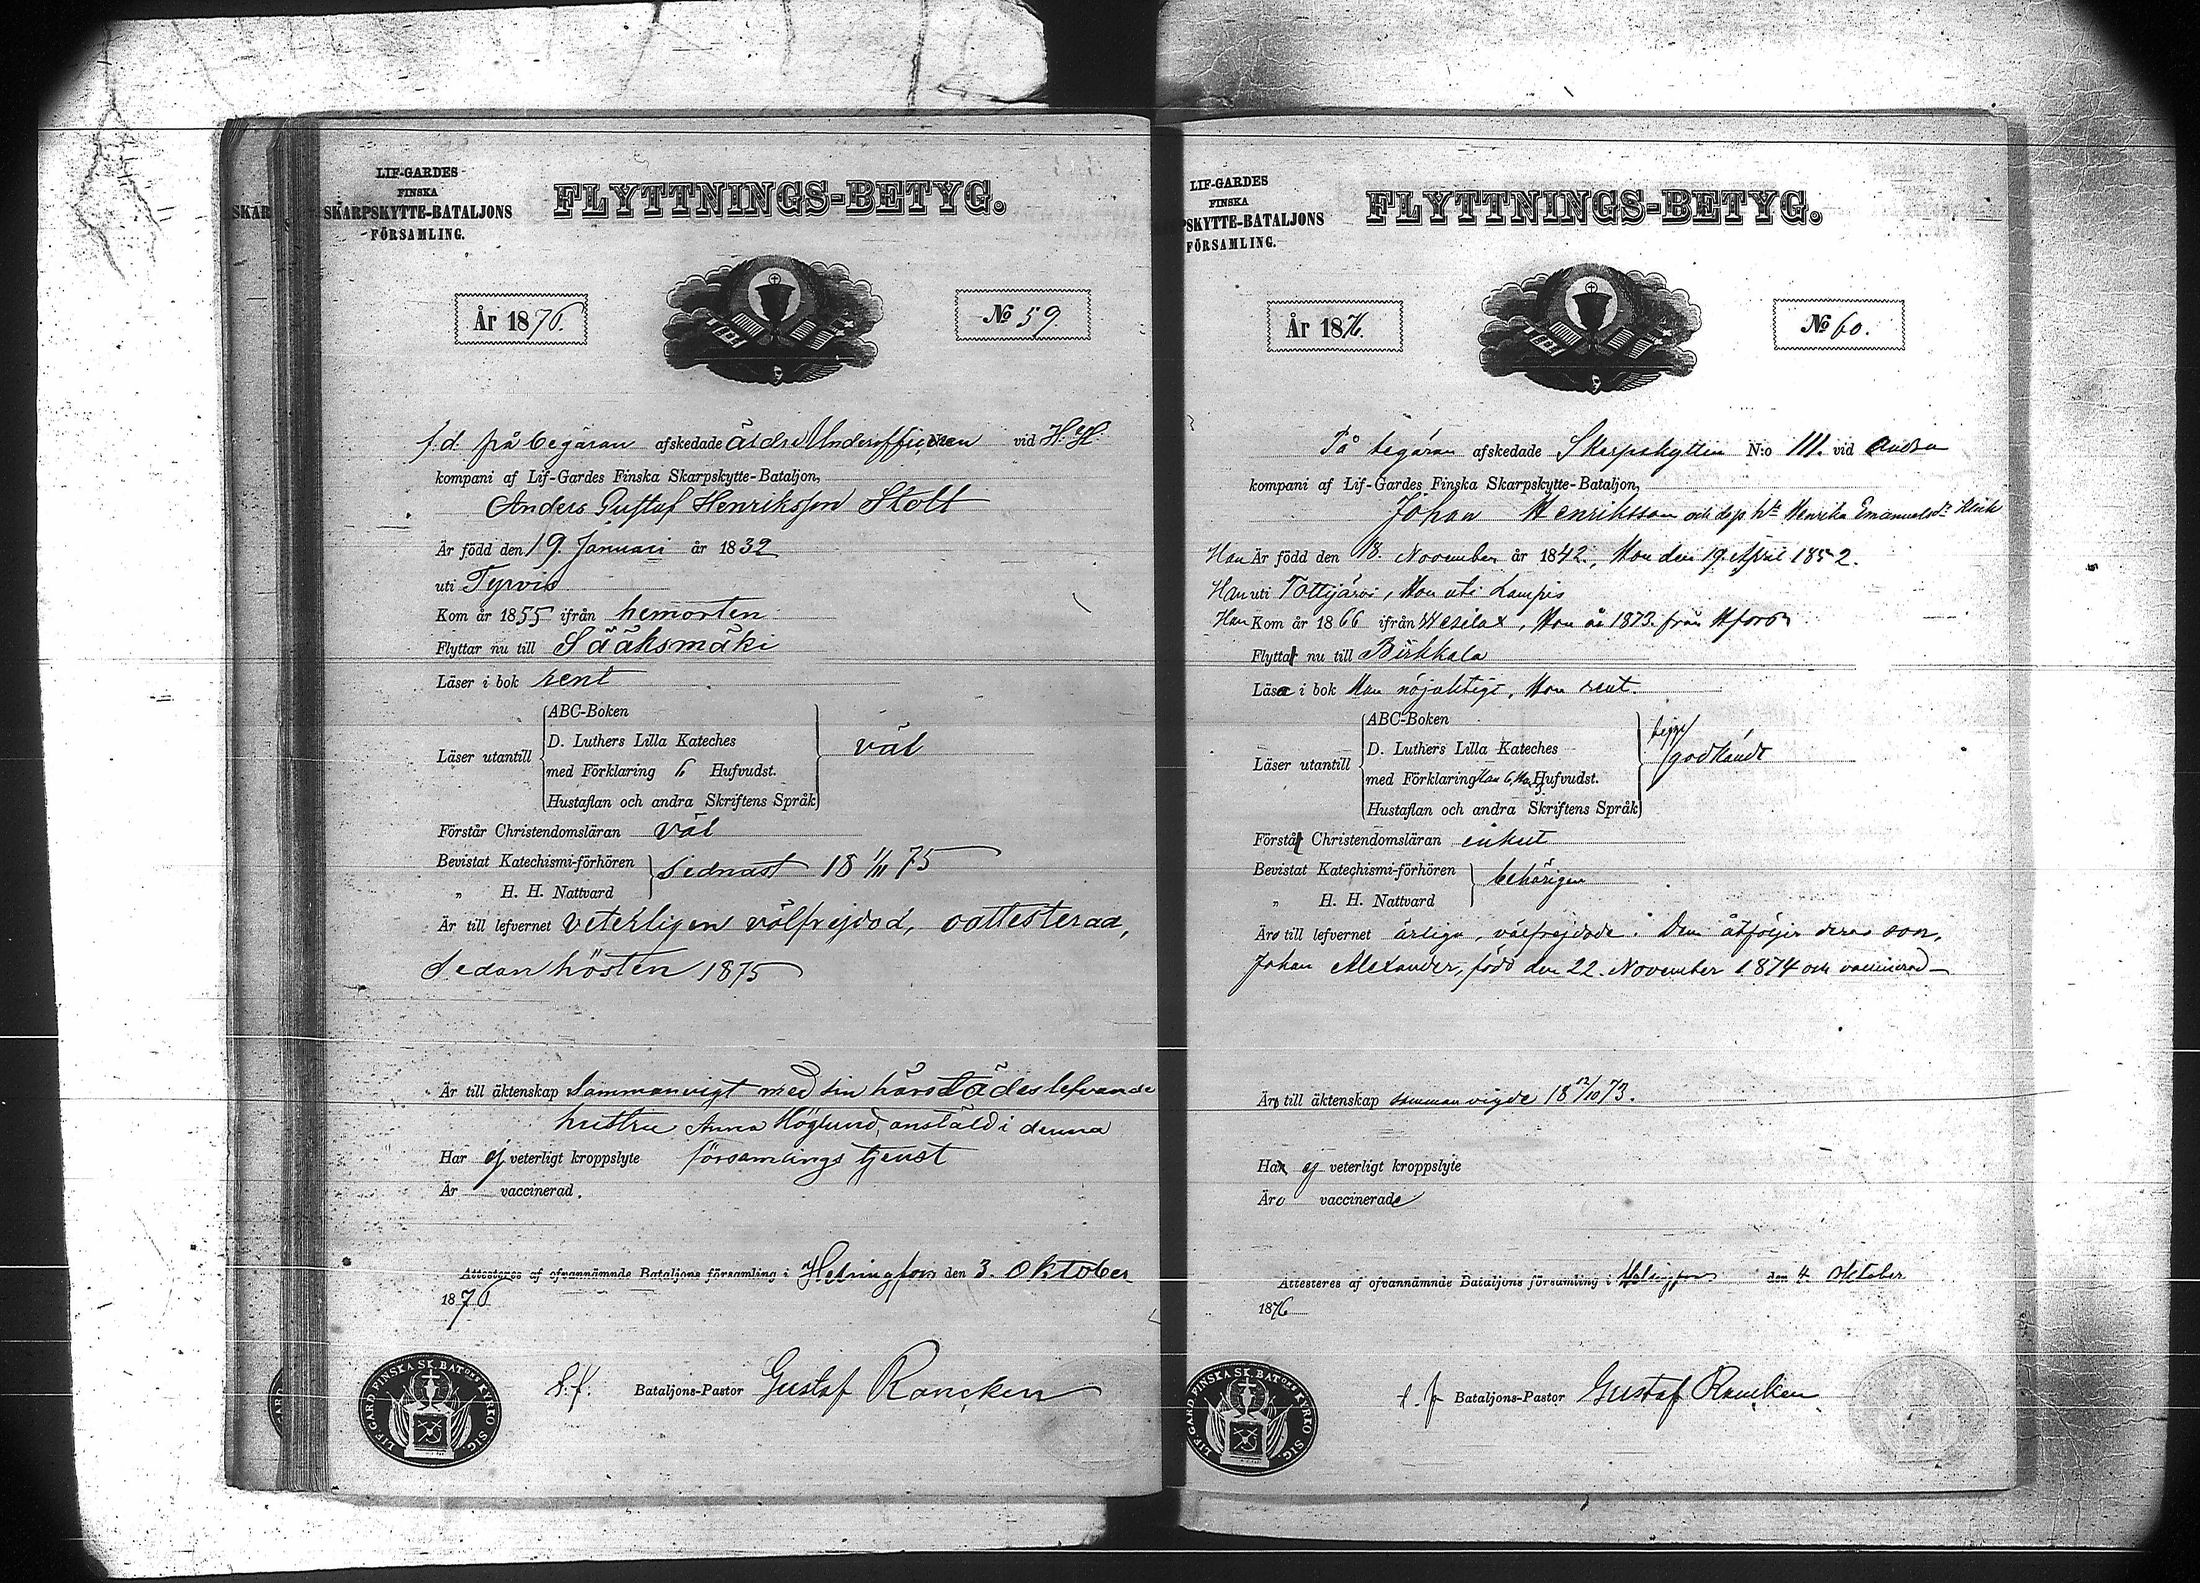 LIF-GARDES
FINSKA
SKARPSKYTTE-BATALJONS
FÖRSAMLING.
FLYTTNINGS-BETYG.
År 1876.
No 59.
f.d. på begäran afskedade äldre Underofficeren vid H. H.
kompani af Lif-Gardes Finska Skarpskytte-Bataljon,
Anders Gustaf Henriksson Stolt
Är född den 19. Januari år 1832
uti Tyrvis
Kom år 1855 ifrån hemorten
Flyttar nu till Sääksmäki
Läser i bok rent
Läser utantill
ABC-Boken
D. Luthers Lilla Kateches
med Förklaring 6 Hufvudst.
Hustaflan och andra Skriftens Språk
väl
Förstår Christendomsläran väl
Bevistat Katechismi-förhören
„ H. H. Nattvard
sednast 18 1/11 75
Är till lefvernet veterligen välfrejdad, oattesterad,
sedan hösten 1875
Är till äktenskap sammanvigt med sin härstädes lefvande
hustru Anna Höglund, anstäld i denna
Har ej veterligt kroppslyte församlings tjenst
Är vaccinerad.
Attesteres af ofvannämnde Bataljons församling i Helsingfors den 3. Oktober
1876
S. f. Bataljons-Pastor Gustaf Rancken
LIF. GARD. FINSKA SK. BAT:ONS KYRKO SIG.
LIF-GARDES
FINSKA
SKYTTE-BATALJONS
FÖRSAMLING.
FLYTTNINGS-BETYG.
År 1876.
No 60.
På begäran afskedade Skarpskytten N:o 111. vid Andra
kompani af Lif-Gardes Finska Skarpskytte-Bataljon,
Johan Henriksson och dess h:u Henrika Emanuelsd:r
Han Är född den 18. November år 1842, Hon den 19. April 1852.
Han uti Tottijärvi, Hon uti Lampis
Han Kom år 1866 ifrån Wesilax, Hon år 1873. från Hfors
Flytta nu till Birkkala
Läsa i bok Han nöjaktigt, Hon rent.
Läser utantill
ABC-Boken
D. Luthers Lilla Kateches
med Förklaring Han 6, Hon Hufvudst.
Hustaflan och andra Skriftens Språk
begge
godkändt
Förstå Christendomsläran enkelt
Bevistat Katechismi-förhören
„ H. H. Nattvard
behörigen
Äro till lefvernet ärliga, välfrejdade. Dem åtföljer deras son,
Johan Alexander, född den 22. November 1874 och vaccinerad
Äro till äktenskap sammanvigde 18 12/10 73.
Ha ej veterligt kroppslyte
Äro vaccinerade
Attesteres af ofvannämnde Bataljons församling i Helsingfors den 4. Oktober
1876
S. f. Bataljons-Pastor Gustaf Rancken
LIF. GARD. FINSKA SK. BAT:ONS KYRKO SIG.